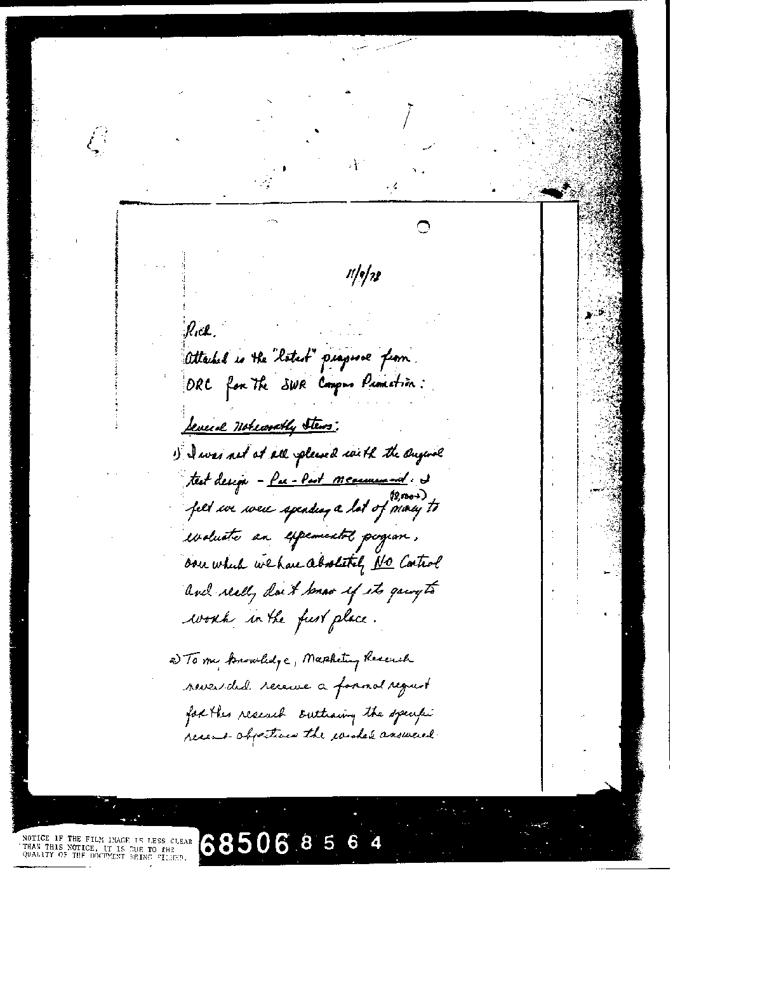 11/9/78
Rich.
Attached is the "latest" proposal from
ORC for the SWR Campus Promotion:
Several Noteworthy Items:
1) I was not at all pleased with the original
test design - Pre-Post measurement. I
felt we were spending a lot of money to
evaluate an experimental program,
one which we have absolutely NO Control
and really don't know if its going to
work in the first place.
2) To my knowledge, Marketing Research
never did receive a formal request
for this research outlining the specific
research objectives the answered
NOTICE IF THE FILM IMAGE IS LESS CLEAR
THAN THIS NOTICE, IT IS DUE TO THE
QUALITY OF THE DOCUMENT BEING FILMED.
68506 8564